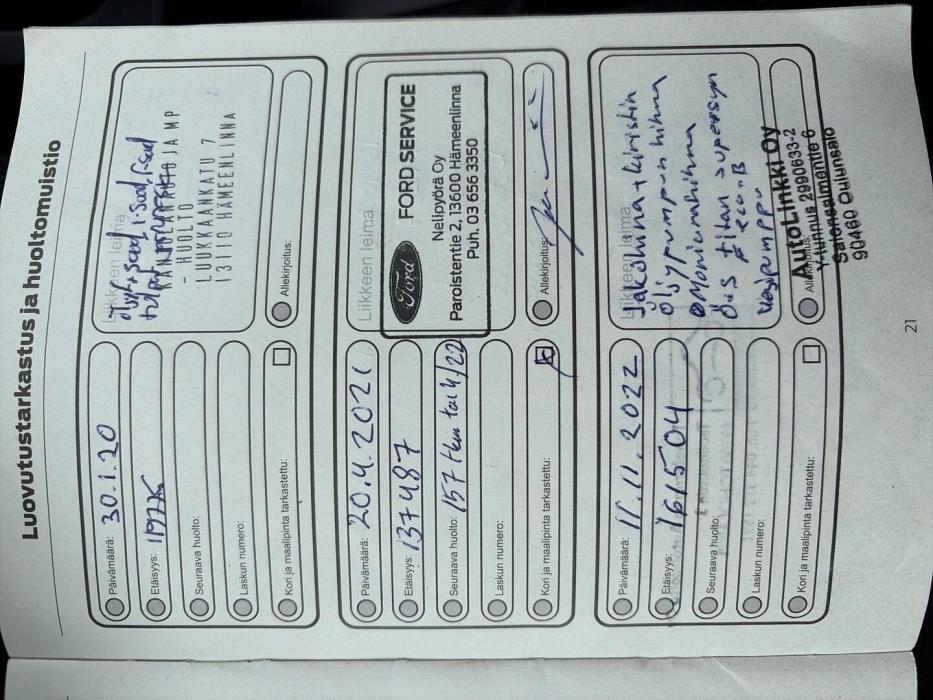 Luovutustarkastus ja huoltomuistio
Päivämäärä: 30.1.20
Etäisyys:
Seuraava huolto:
Laskun numero:
Kori ja maalipinta tarkastettu:
Liikkeen leima
- HUOLTO
LUUKKAANKATU 7
13110 HÄMEENLINNA
Allekirjoitus:
Päivämäärä: 20.4.2021
Etäisyys: 137487
Seuraava huolto: 157 tkm tai 4/22
Laskun numero:
Kori ja maalipinta tarkastettu:
Liikkeen leima
Ford FORD SERVICE
Nelipyörä Oy
Parolstentie 2, 13600 Hämeenlinna
Puh. 03 656 3350
Allekirjoitus:
Päivämäärä: 11.11.2022
Etäisyys: 161504
Seuraava huolto:
Laskun numero:
Kori ja maalipinta tarkastettu:
Liikkeen leima
Jakohihna + kiristin
Öljypumpun hihna
Monivrahihna
Vesipumppu
Allekirjoitus:
AutoLinkki Oy
Y-tunnus 2990633-2
Salonselmäntie 6
90460 Oulunsalo
21